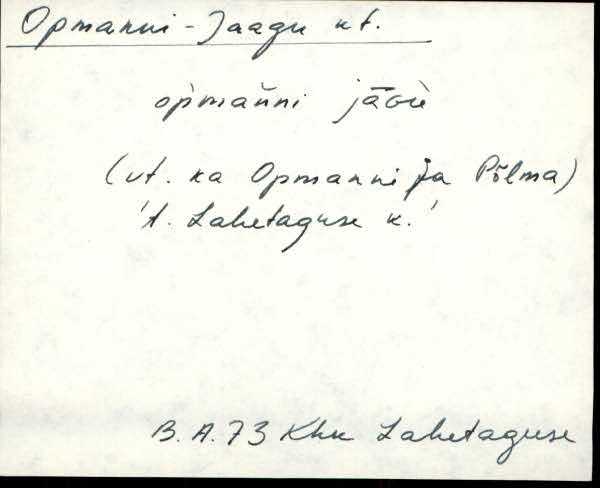 Opmanni-Jaagu vt.
opmanni
(vt. ka Opmanni ja Põlma)
't. Lahetaguse k.'
B. A. 73 Khk Lahetaguse